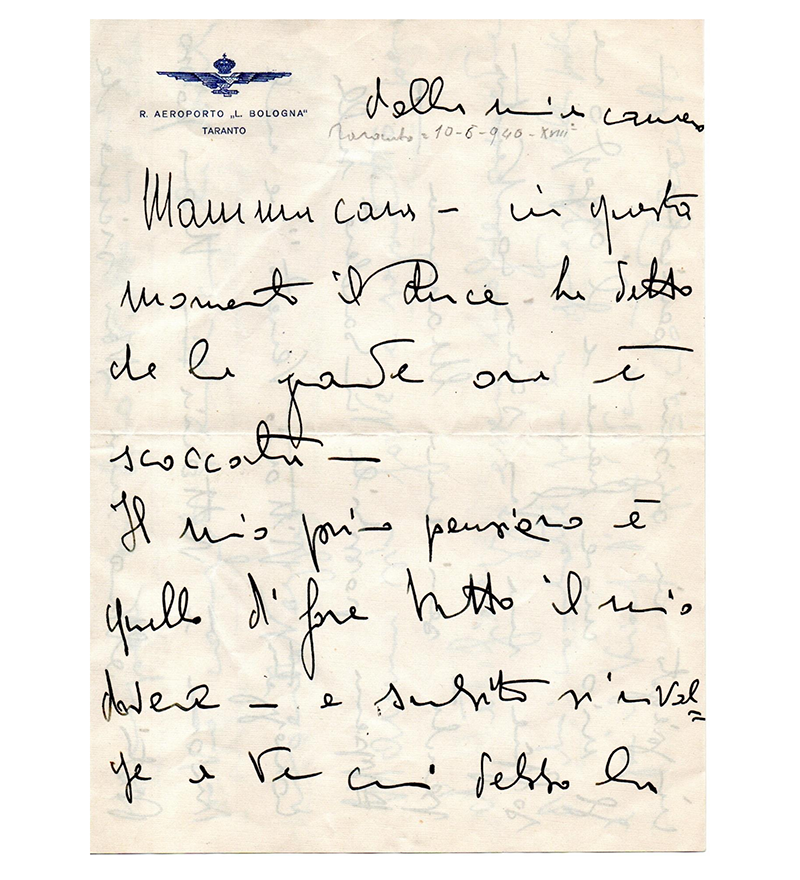 R. AEROPORTO „L. BOLOGNA"
TARANTO
dalla mia camera
Taranto = 10-6-940-XVIII°
Mamma cara – in questo
momento il Duce ha detto
che la grande ora è
scoccata –
Il mio primo pensiero è
quello di fare tutto il mio
dovere – e subito si rivol=
ge a Te cui debbo la